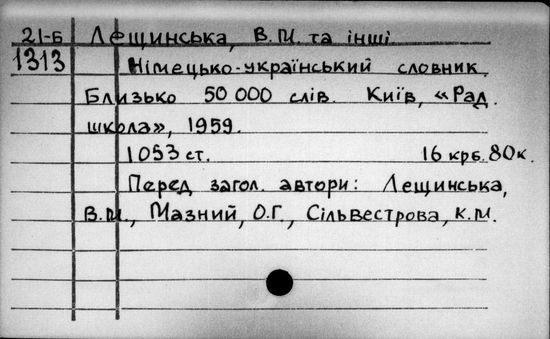 21-Б Лещинська, В.М. та інші
1313 Німецько-український словник.
Близько 50 000 слів. Київ, «Рад.
школа», 1959.
1053 ст. 16 крб. 80к.
Перед загол. автори: Лещинська,
В.М., Мазний, О.Г., Сільвестрова, К.М.